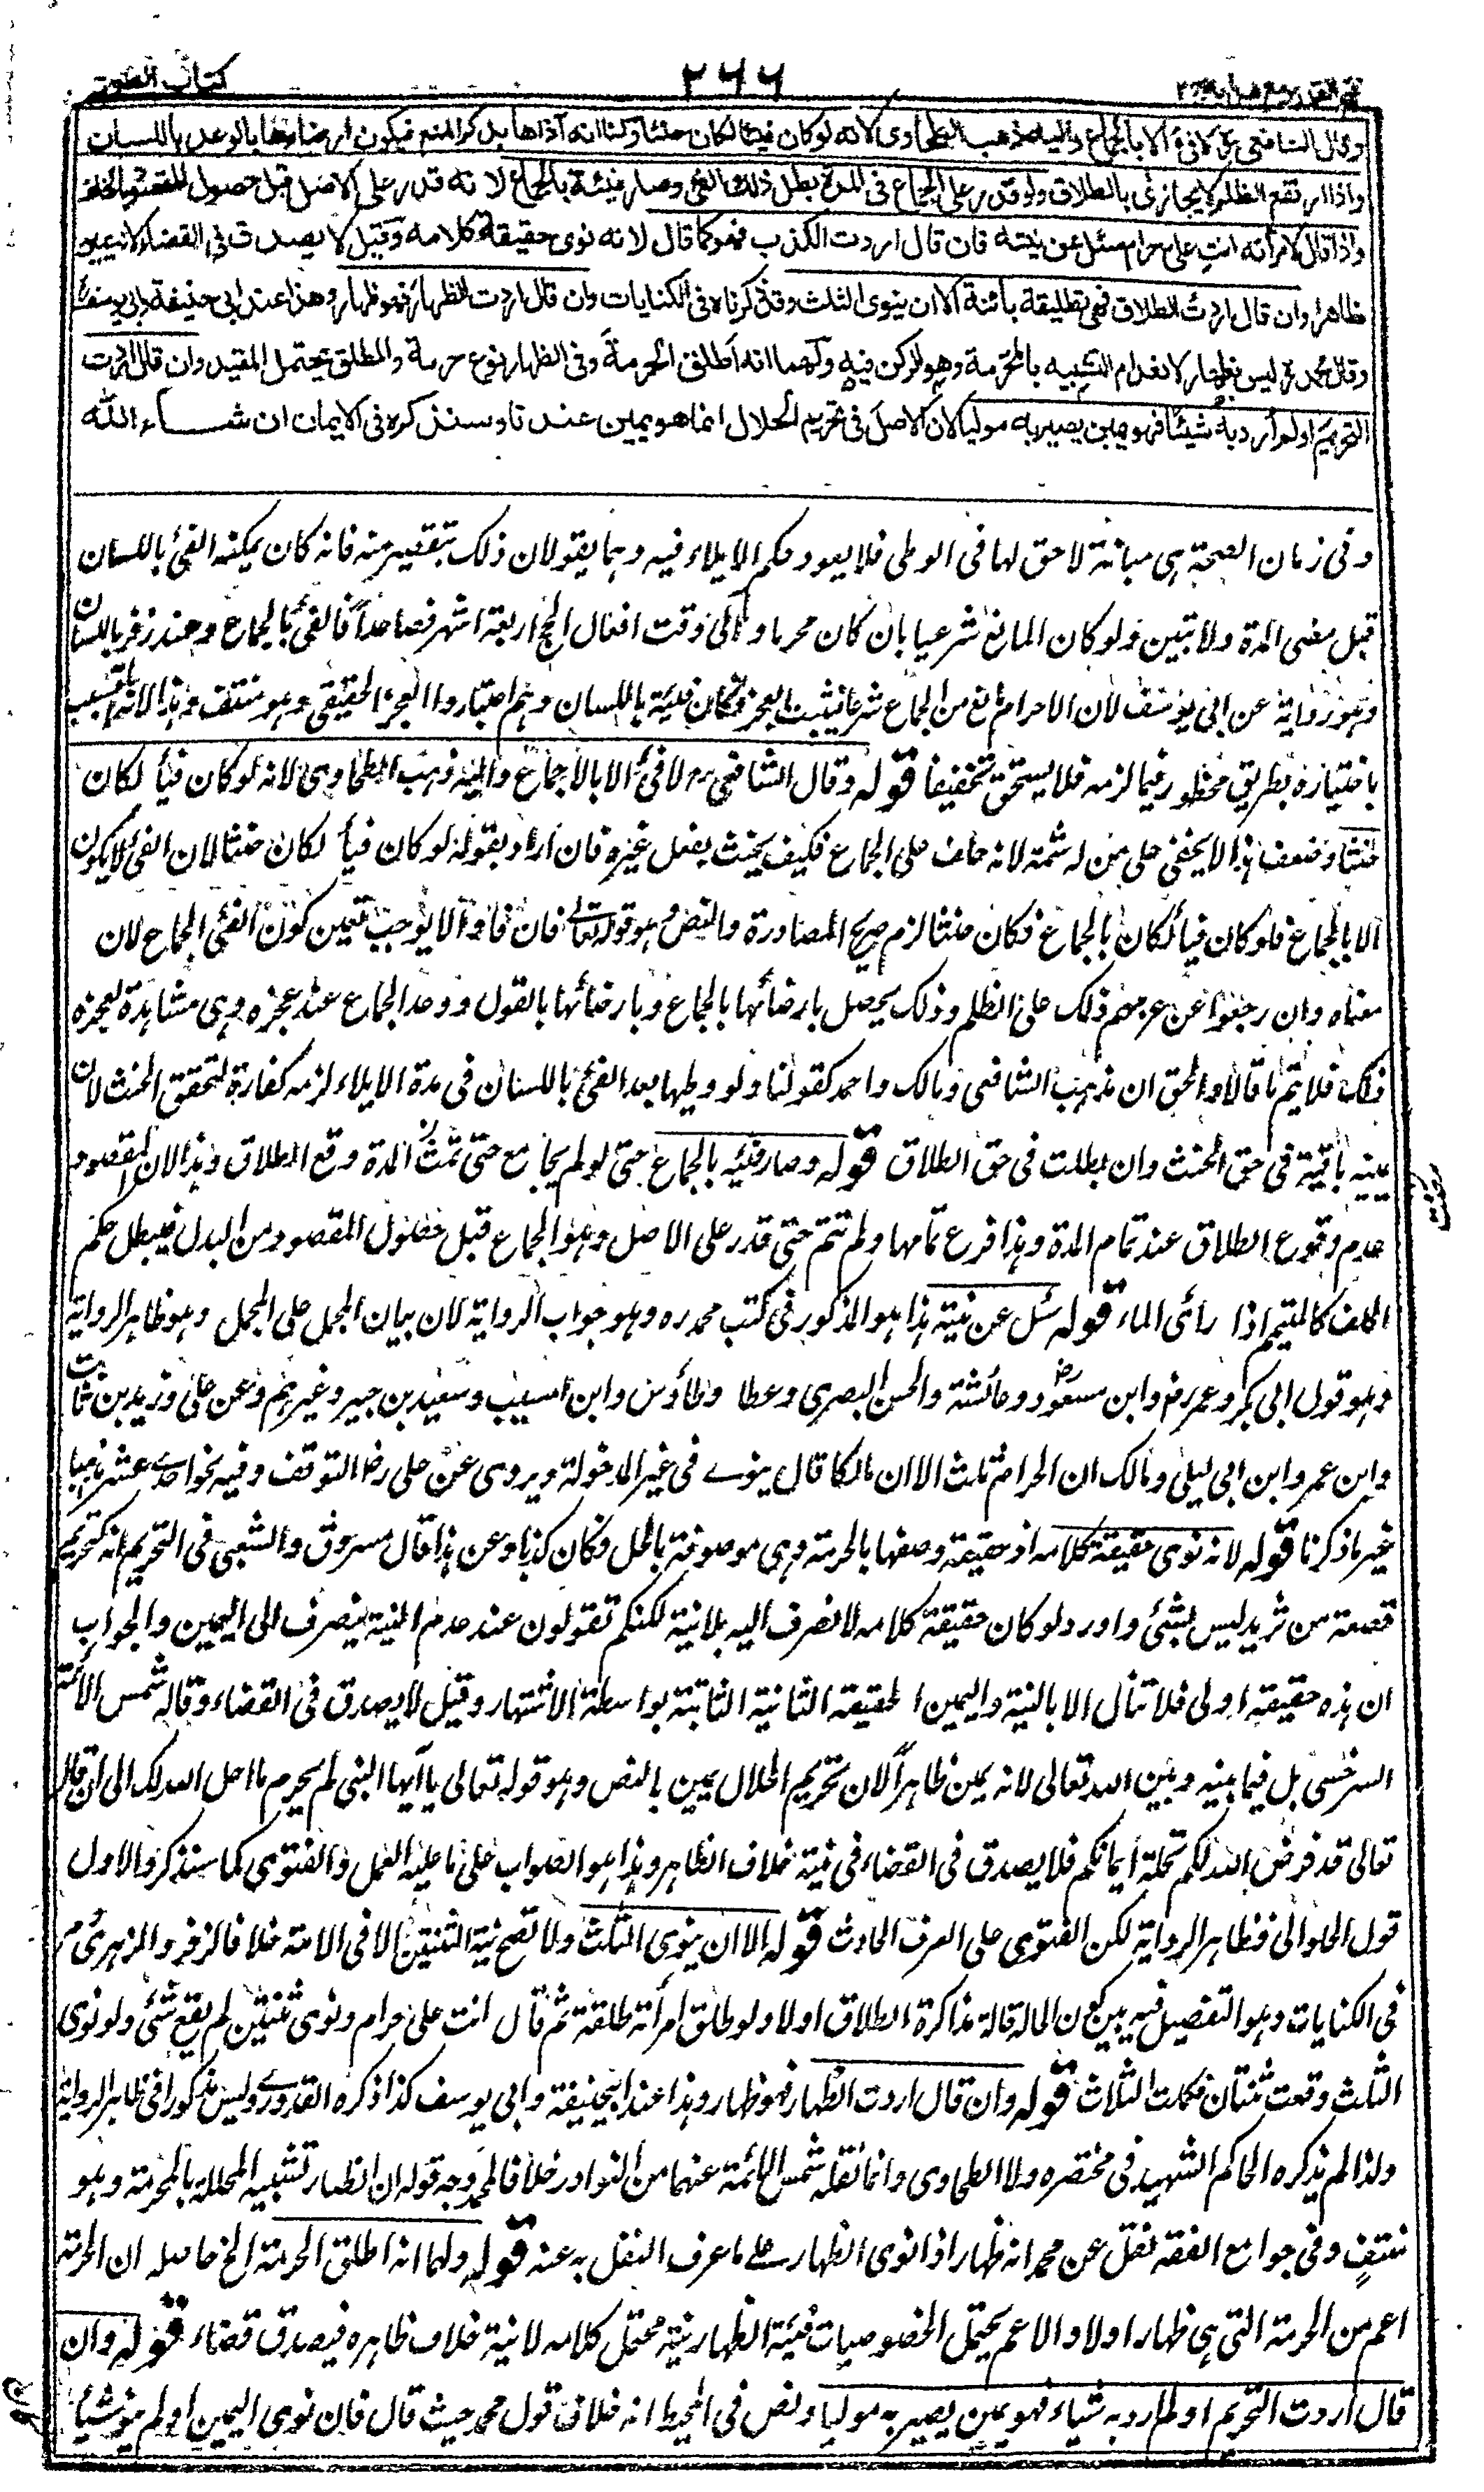 كتاب الطلاق
٢٦٦
فتح القدير مع هداية ج٢
وقال الشافعي رح لا فئ الا بالجماع واليه ذهب الطحاوى لانه لوكان فيئا لكان حنثا ولنا انه آذاها بذكر المنع فيكون ارضاءها بالوعد باللسان
واذا ارتفع الظلم لا يجازى بالطلاق ولو قدر على الجماع فى المدة بطل ذلك الفئ وصار فيئه بالجماع لانه قدر على الاصل قبل حصول المقصود بالخلف
واذا قال لامرأته انت على حرام سئل عن نيته فان قال اردت الكذب فهو كما قال لانه نوى حقيقة كلامه وقيل لا يصدق فى القضاء لانه يمين
ظاهرا وان قال اردت الطلاق فهى تطليقة بائنة الا ان ينوى الثلث وقد ذكرناه فى الكنايات وان قال اردت الظهار فهو ظهار وهذا عند ابى حنيفة وابى يوسف رح
وقال محمد رح ليس بظهار لانعدام التشبيه بالمحرمة وهو الركن فيه ولهما انه اطلق الحرمة وفى الظهار نوع حرمة والمطلق يحتمل المقيد وان قال اردت
التحريم او لم أرد به شيئا فهو يمين يصير به موليا لان الاصل فى تحريم الحلال انما هو يمين عندنا وسنذكره فى الايمان ان شاء الله
وفى زمان الصحة هى مبانة لا حق لها فى الوطى فلا يعود حكم الايلاء فيه وهما يقولان ذلك بتقصير منه فانه كان يمكنه الفئ باللسان
قبل مضى المدة ولا تبين ولو كان المانع شرعيا بان كان محرما والى وقت افعال الحج اربعة اشهر فصاعدا فالفئ بالجماع وعند زفر باللسان
وهو رواية عن ابى يوسف لان الاحرام مانع من الجماع شرعا فيثبت العجز فكان فيئه باللسان وهم اعتبروا العجز الحقيقى وهو منتف وهذا لانه المتسبب
باختياره بطريق محظور فيما لزمه فلا يستحق تخفيفا قوله وقال الشافعى رح لا فئ الا بالاجماع واليه ذهب الطحاوى لانه لو كان فيأ لكان
حنثا وضعف هذا لا يخفى على من له شمة لانه حلف على الجماع فكيف يحنث بفعل غيره فان اراد بقوله لو كان فيأ لكان حنثا لان الفئ لا يكون
الا بالجماع فلو كان فيأ لكان بالجماع فكان حنثا لزم صريح المصادرة والنص وهو قوله تعالى فان فاؤا لا يوجب تعين كون الفئ الجماع لان
معناه وان رجعوا عن عزمهم ذلك على الظلم وذلك يحصل بارضائها بالجماع وبارضائها بالقول ووعد الجماع عند عجزه وهى مشاهدة لعجزه
ذلك فلا يتم ما قالا والحق ان مذهب الشافعى ومالك واحمد كقولنا ولو وطيها بعد الفئ باللسان فى مدة الايلاء لزمه كفارة لتحقق الحنث لان
يمينه باقية فى حق الحنث وان بطلت فى حق الطلاق قوله وصار فيئه بالجماع حتى لو لم يجامع حتى تمت المدة وقع الطلاق وهذا لان المقصود
عدم وقوع الطلاق عند تمام المدة وهذا فرع تمامها ولم تتم حتى قدر على الاصل وهو الجماع قبل حصول المقصود من البدل فيبطل حكم
الخلف كالمتيمم اذا رأى الماء قوله سئل عن نيته هذا هو المذكور فى كتب محمد ره وهو جواب الرواية لان بيان المجمل على المجمل وهو ظاهر الرواية
وهو قول ابى بكر وعمر رض وابن مسعود وعائشة والحسن البصرى وعطا وطاؤس وابن المسيب وسعيد بن جبير وغيرهم وعن على وزيد بن ثابت
وابن عمر وابن ابى ليلى ومالك ان الحرام ثلث الا ان مالكا قال ينوى فى غير المدخولة ويروى عن على رض التوقف وفيه نحو احدى عشر مذهبا
غير ما ذكرنا قوله لانه نوى حقيقة كلامه اذ حقيقته وصفها بالحرمة وهى موصوفة بالحل فكان كذبا وعن هذا قال مسروق والشعبى فى التحريم انه كتحريم
قصعة من ثريد ليس بشئ واورد لو كان حقيقة كلامه لانصرف اليه بلا نية لكنكم تقولون عند عدم النية ينصرف الى اليمين والجواب
ان هذه حقيقة اولى فلا تنال الا بالنية واليمين الحقيقة الثانية الثابتة بواسطة الاشتهار وقيل لا يصدق فى القضاء وقاله شمس الائمة
السرخسى بل فيما بينه وبين الله تعالى لانه يمين ظاهرا لان تحريم الحلال يمين بالنص وهو قوله تعالى يا أيها النبى لم تحرم ما احل الله لك الى ان قال
تعالى قد فرض الله لكم تحلة أيمانكم فلا يصدق فى القضاء فى نية خلاف الظاهر وهذا هو الصواب على ما عليه العمل والفتوى كما سنذكر والاول
قول الحلوانى فظاهر الرواية لكن الفتوى على العرف الحادث قوله الا ان ينوى الثلث ولا تصح نية الثنتين الا فى الامة خلافا لزفر والزهرى مر
فى الكنايات وهو التفصيل فيه بين كون الحالة حالة مذاكرة الطلاق اولا ولو طلق امرأته طلقة ثم قال انت على حرام ونوى ثنتين لم يقع شئ ولو نوى
الثلث وقعت ثنتان فكملت الثلاث قوله وان قال اردت الظهار فهو ظهار وهذا عند ابيحنيفة وابى يوسف كذا ذكره القدورى وليس مذكورا فى ظاهر الرواية
ولذا لم يذكره الحاكم الشهيد فى مختصره ولا الطحاوى وانما نقله شمس الائمة عنهما من النوادر خلافا لمحمد وجه قوله ان الظهار تشبيه المحللة بالمحرمة وهو
منتفٍ وفى جوامع الفقه نقل عن محمد انه ظهار اذا نوى الظهار على ما عرف النقل به عنه قوله ولهما انه اطلق الحرمة الخ حاصله ان الحرمة
اعم من الحرمة التى هى ظهار اولا والاعم يحتمل الخصوصيات فنية الظهار نية محتمل كلامه لا نية خلاف ظاهره فيصدق قضاء قوله وان
قال اردت التحريم او لم ارد به شياء فهو يمين يصير به موليا ونص فى المحيط انه خلاف قول محمد حيث قال فان نوى اليمين او لم ينو شيأ